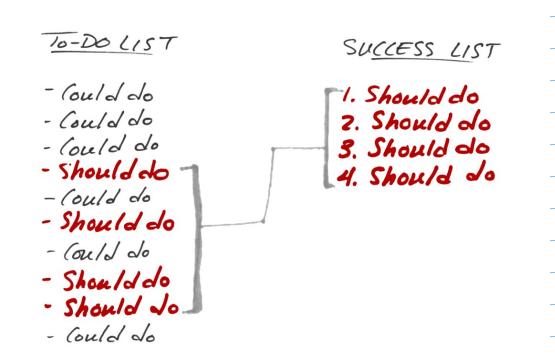 TO-DO LIST
- Could do
- Could do
- Could do
- Should do
- Could do
- Should do
- Could do
- Should do
- Should do
- Could do
SUCCESS LIST
1. Should do
2. Should do
3. Should do
4. Should do